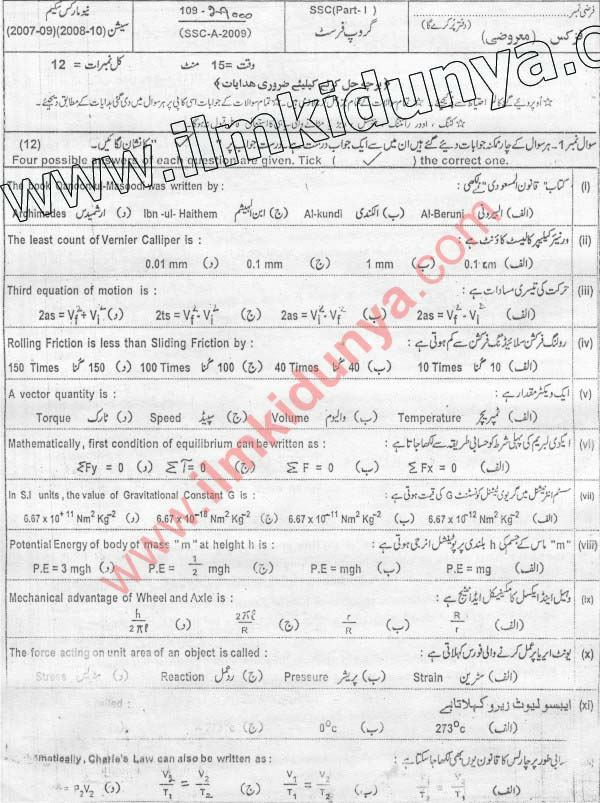 نیو مارکس سکیم
سیشن (2007-09) (2008-10)
109 -
(SSC-A-2009)
SSC(Part- I )
گروپ فرسٹ
فزکس (معروضی)
وقت =15 منٹ کل نمبرات = 12
سوال نمبر 1- ہر سوال کے چار ممکنہ جوابات دیئے گئے ہیں ان میں سے ایک جواب درست ہے درست جواب پر " " کا نشان لگائیں۔ (12)
Four possible answers of each question are given. Tick ( ✓ ) the correct one.
The book Qanoon-ul-Masoodi was written by : کتاب "قانون المسعودی" لکھی : (i)
(الف) البیرونی Al-Beruni (ب) الکندی Al-kundi (ج) ابن الہیثم Ibn -ul- Haithem (د) ارشمیدس Archimedes
The least count of Vernier Calliper is : ورنیئر کیلیپر کا لیسٹ کاؤنٹ ہے : (ii)
(الف) 0.1 cm (ب) 1 mm (ج) 0.1 mm (د) 0.01 mm
Third equation of motion is : حرکت کی تیسری مساوات ہے : (iii)
(الف) 2as = Vf² - Vi² (ب) 2as = Vi² - Vf² (ج) 2ts = Vf² - Vi² (د) 2as = Vf² + Vi²
Rolling Friction is less than Sliding Friction by : رولنگ فرکشن سلائیڈنگ فرکشن سے کم ہوتی ہے : (iv)
(الف) 10 گنا 10 Times (ب) 40 گنا 40 Times (ج) 100 گنا 100 Times (د) 150 گنا 150 Times
A vector quantity is : ایک ویکٹر مقدار ہے : (v)
(الف) ٹمپریچر Temperature (ب) والیوم Volume (ج) سپیڈ Speed (د) ٹارک Torque
Mathematically, first condition of equilibrium can be written as : ایکوی لبریم کی پہلی شرط کو حسابی طریقہ سے لکھا جاتا ہے : (vi)
(الف) Σ Fx = 0 (ب) Σ F = 0 (ج) Σ τ = 0 (د) ΣFy = 0
In S.I units, the value of Gravitational Constant G is : سسٹم انٹرنیشنل میں گریوی ٹیشنل کونسٹنٹ G کی قیمت ہوتی ہے : (vii)
(الف) 6.67 x 10⁻¹² Nm² Kg⁻² (ب) 6.67 x 10⁻¹¹ Nm² Kg⁻² (ج) 6.67 x 10⁻¹⁸ Nm² Kg⁻² (د) 6.67 x 10⁺¹¹ Nm² Kg⁻²
Potential Energy of body of mass "m" at height h is : "m" ماس کے جسم کی h بلندی پر پوٹینشل انرجی ہوتی ہے : (viii)
(الف) P.E = mg (ب) P.E = mgh (ج) P.E = 1/2 mgh (د) P.E = 3 mgh
Mechanical advantage of Wheel and Axle is : وہیل اینڈ ایکسل کا مکینیکل ایڈوانٹیج ہے : (ix)
(الف) R/r (ب) r/R (ج) 2πl/R (د) h/2πl
The force acting on unit area of an object is called : یونٹ ایریا پر عمل کرنے والی فورس کہلاتی ہے : (x)
(الف) سٹرین Strain (ب) پریشر Pressure (ج) رد عمل Reaction (د) سٹریس Stress
called : ایبسولیوٹ زیرو کہلاتا ہے (xi)
(الف) 273°c (ب) 0°c (ج) -273°c
Charle's Law can also be written as : حسابی طور پر چارلس کا قانون یوں بھی لکھا جا سکتا ہے :
(ب) V₁/T₁ = V₂/T₂ (د) P₂V₂
www.ilmkidunya.com
www.ilmkidunya.com